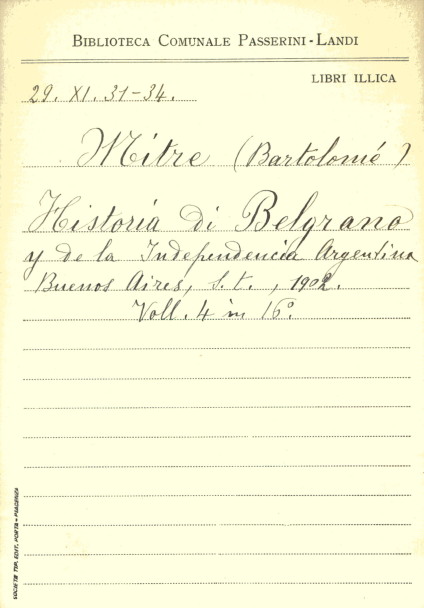 BIBLIOTECA COMUNALE PASSERINI-LANDI
LIBRI ILLICA
29. XI. 31-34.
Mitre (Bartolomé)
Historia di Belgrano
y de la Independencia Argentina
Buenos Aires, s. t., 1902.
Voll. 4 in 16º.
SOCIETÀ TIP. EDIT. PORTA - PIACENZA